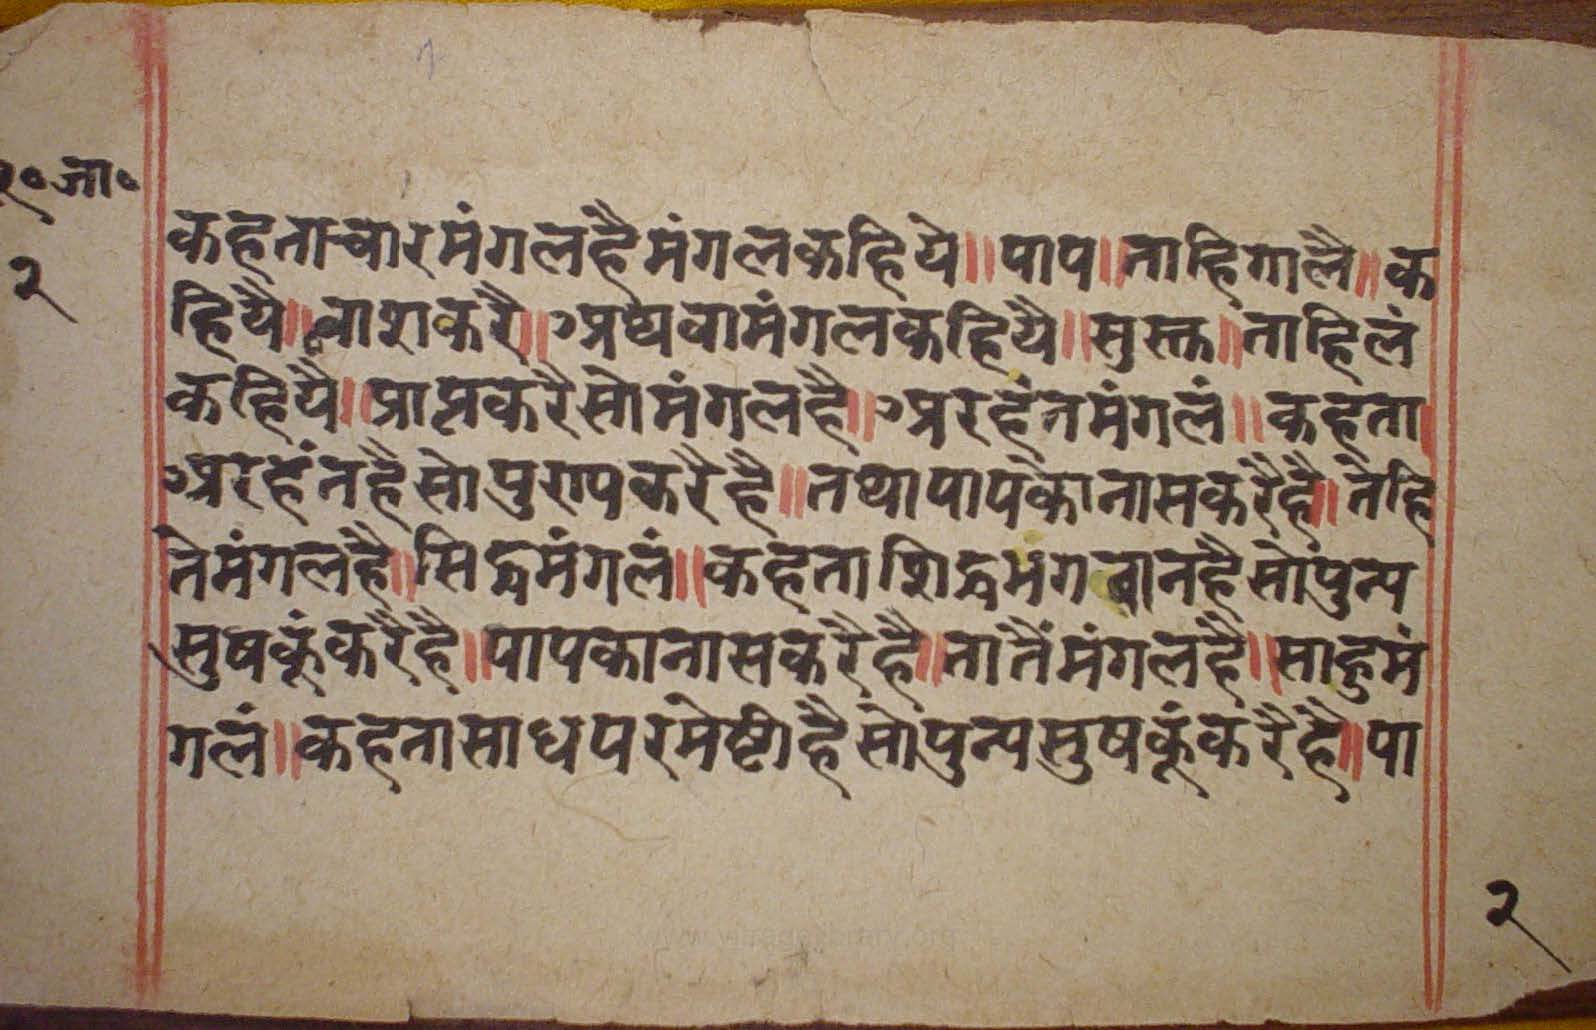 र॰जा॰
२
कहताचारमंगलहैमंगलकहिये॥पाप॥ताहिगालै॥क
हियै॥नाशकरै॥अथवामंगलकहियै॥सुख॥ताहिलं
कहियै॥प्राप्तकरैसोमंगलहै॥अरहंतमंगलं॥कहता
अरहंतहैसोपुण्यकरैहै॥तथापापकोनासकरैहै॥तेहि
तेमंगलहै॥सिद्धमंगलं॥कहताशिद्धभगवानहैसोपुन्य
सुषकूंकरैहै॥पापकानासकरैहै॥तातैंमंगलहै॥साहुमं
गलं॥कहतासाधपरमेष्टीहैसोपुन्यसुषकूंकरैहै॥पा
२